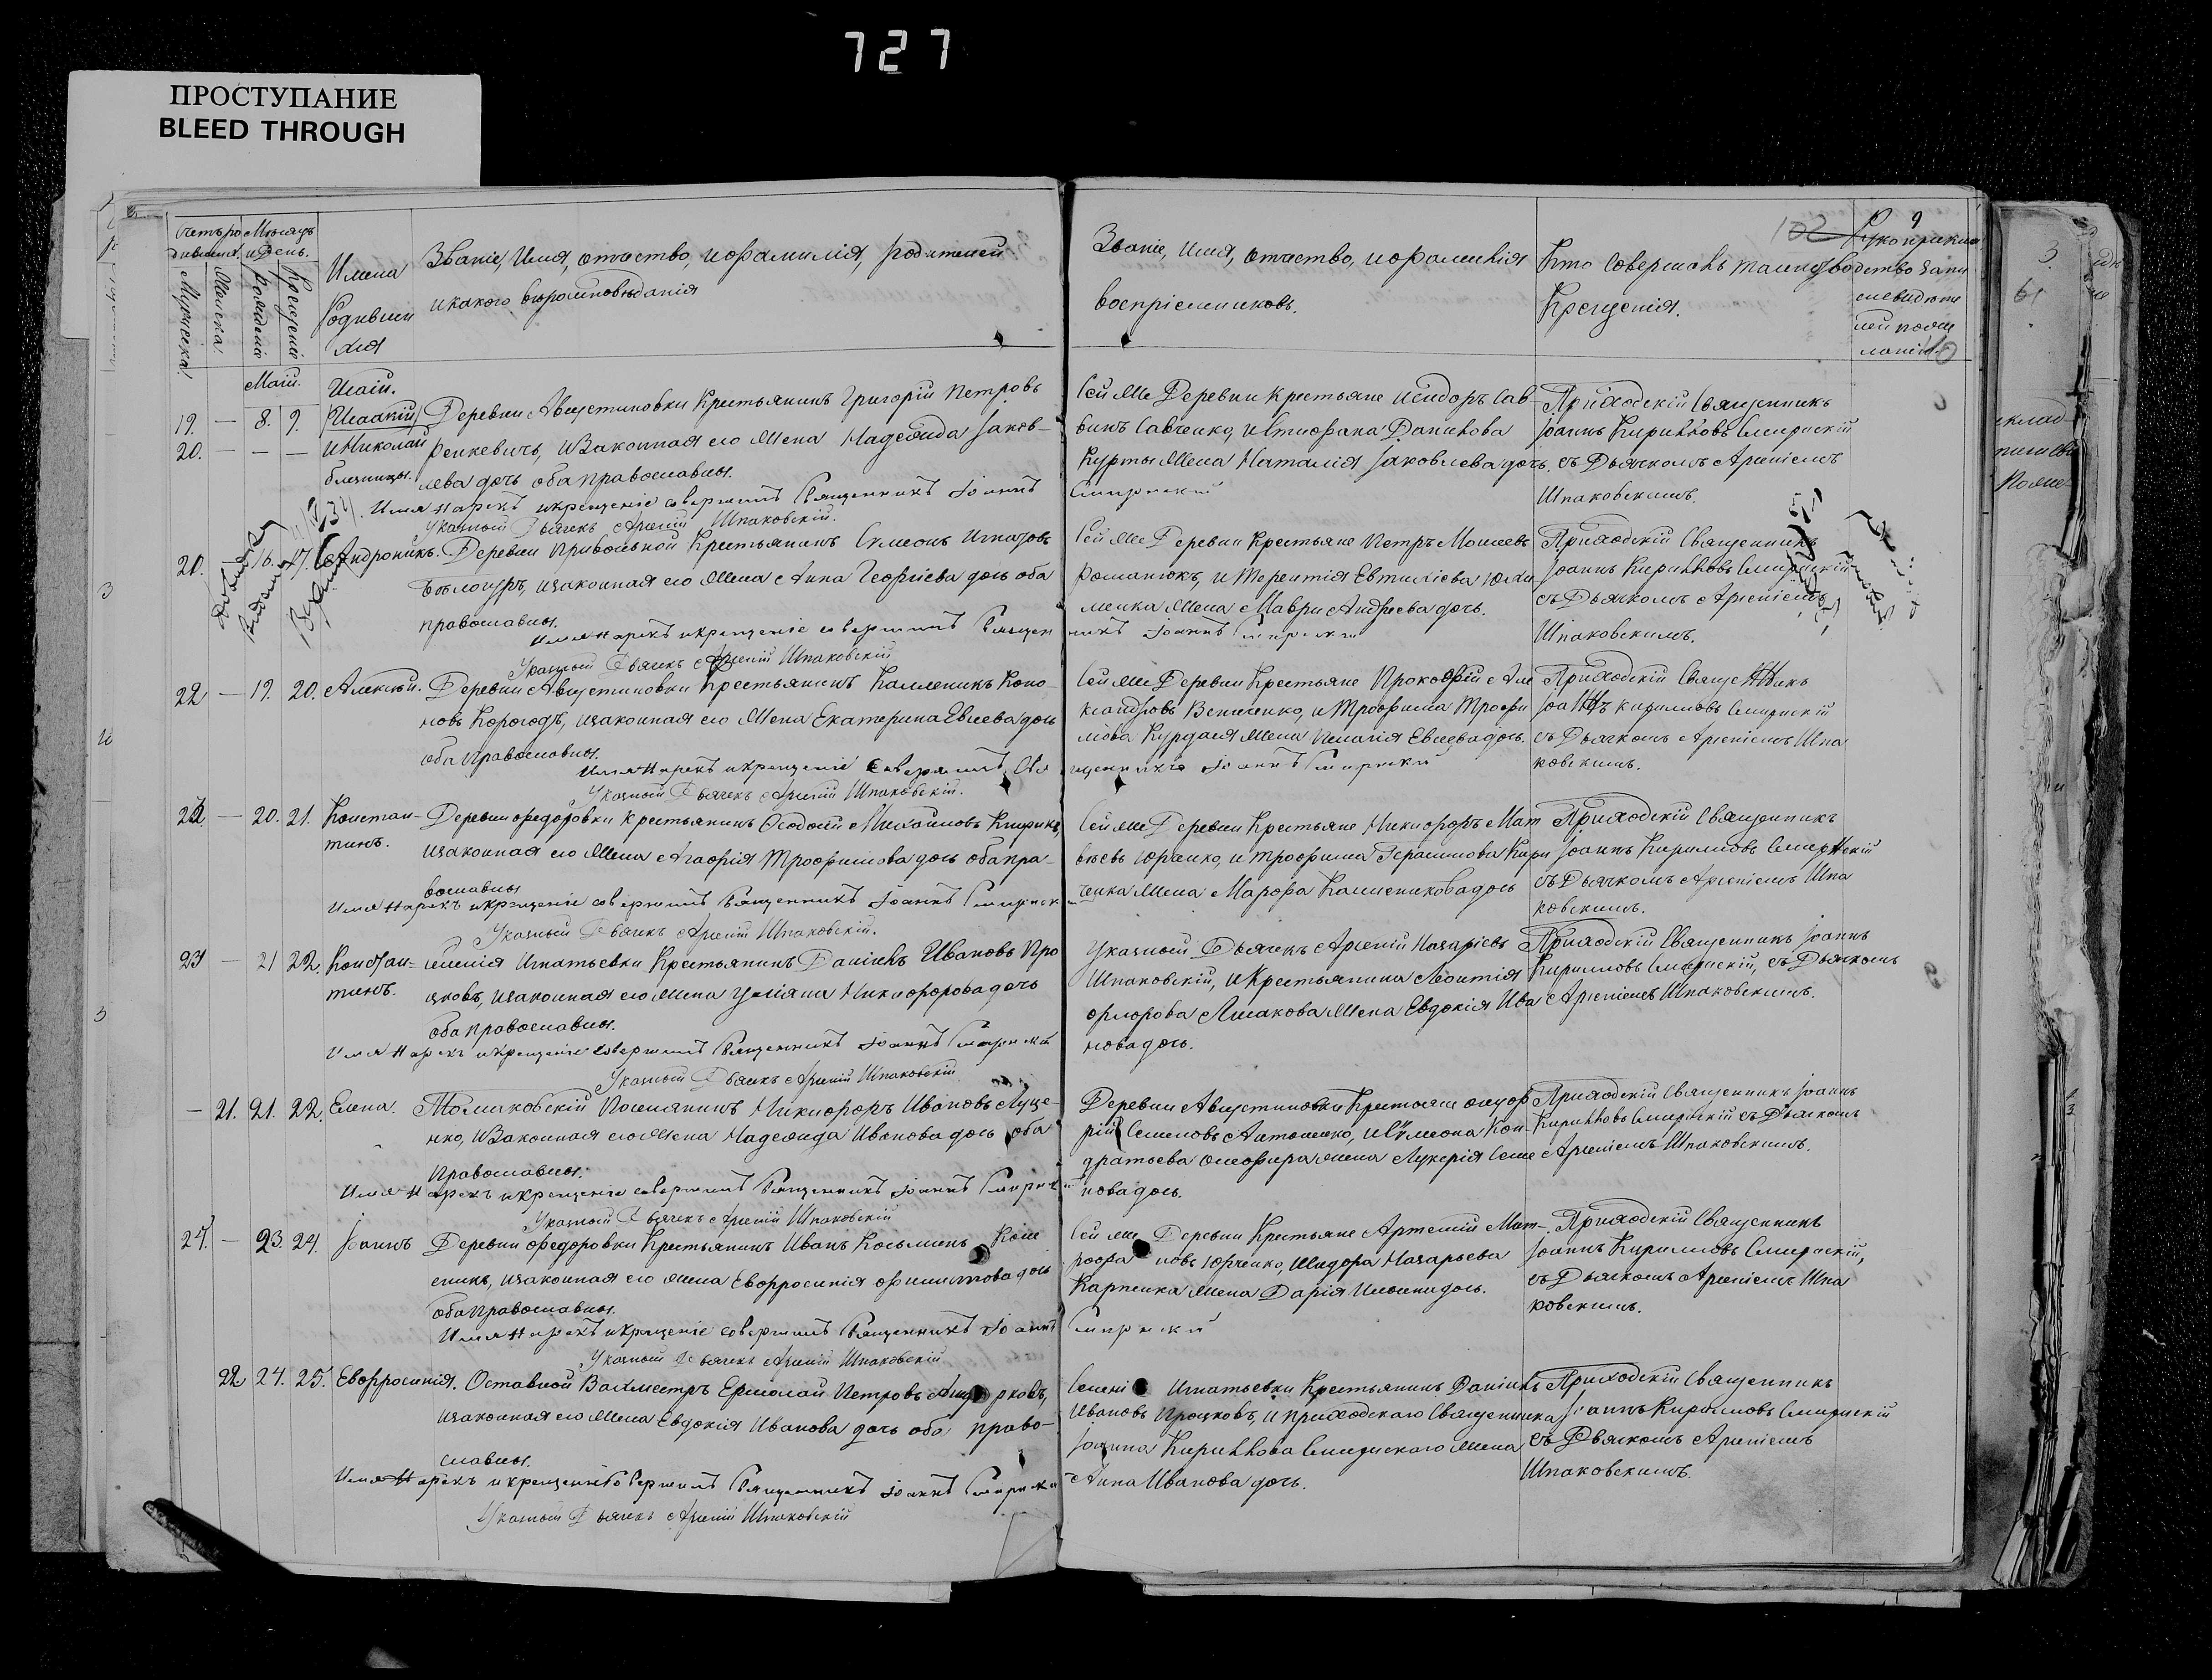 727
ПРОСТУПАНИЕ
BLEED THROUGH
Счетъ родившихся.
Мѣсяцъ и День.
Мужеска.
Женска.
Рожденія
Крещенія
Имена
Родивши
хся
Званіе, Имя, отчество, и фамилія, родителей
и какого вѣроисповѣданія
Званіе, Имя, отчество, и фамилія
воспріемниковъ.
Кто совершалъ таинство
Крещенія.
102
9
Рукоприкла
дство запи
си свидѣте
лей по же
ланію.
Маій.
19. — 8. 9.
20. — — —
Исаакій
и Николай
близницы.
Деревни Августиновки Крестьянинъ Григорій Петровъ
Ренкевичъ, и Законная его Жена Надежда Іаков-
лева дочь оба православны.
Имя нарекъ и крещеніе совершилъ Священникъ Іоаннъ Смирнскій
Указный Дьячекъ Арсеній Шпаковскій.
Сей же Деревни Крестьяне Исидоръ Сав-
винъ Савченко, и Стефана Данилова
Курты Жена Наталія Іаковлева дочь.
Приходскій Священникъ
Іоаннъ Кирилловъ Смирнскій
съ Дьячкомъ Арсеніемъ
Шпаковскимъ.
— 16. 17. Андроникъ.
Деревни Привольной Крестьянинъ Сумеонъ Игнатовъ
Бѣлоусъ, и законная его Жена Анна Георгіева дочь оба
православны.
Имя нарекъ и крещеніе совершилъ Священникъ Іоаннъ Смирнскій
Указный Дьячекъ Арсеній Шпаковскій
Сей же Деревни Крестьяне Петръ Моисеевъ
Романюкъ, и Терентія Евтихіева
менка Жена Мавра Андреева дочь.
Приходскій Священникъ
Іоаннъ Кирилловъ Смирнскій
съ Дьячкомъ Арсеніемъ
Шпаковскимъ.
22 — 19. 20. Алексѣй.
Деревни Августиновки Крестьянинъ Каллиникъ Коно-
новъ Корогодъ, и законная его Жена Екатерина Евсеева дочь
оба православны.
Имя нарекъ и крещеніе совершилъ Священникъ Іоаннъ Смирнскій
Указный Дьячекъ Арсеній Шпаковскій.
Сей же Деревни Крестьяне Прокофій Але
ксандровъ и Трофима Трофи
мова Жена Пелагія Евсеева дочь.
Приходскій Священникъ
Іоаннъ Кирилловъ Смирнскій
съ Дьячкомъ Арсеніемъ Шпа
ковскимъ.
— 20. 21. Констан-
тинъ.
Деревни Федоровки Крестьянинъ Феодосій Михаиловъ
и законная его Жена Агафія Трофимова дочь оба пра-
вославны
Имя нарекъ и крещеніе совершилъ Священникъ Іоаннъ Смирнскій
Указный Дьячекъ Арсеній Шпаковскій.
Сей же Деревни Крестьяне Никифоръ Мат
вѣевъ Юрченко, и Трофима Герасимова Кири
ченка Жена Марфа Каллиникова дочь
Приходскій Священникъ
Іоаннъ Кирилловъ Смирнскій
съ Дьячкомъ Арсеніемъ Шпа
ковскимъ.
23 — 21 22. Констан-
тинъ.
Селенія Игнатьевки Крестьянинъ Даніилъ Ивановъ Про
цковъ, и законная его Жена Уліяна Никифорова дочь
оба православны.
Имя нарекъ и крещеніе совершилъ Священникъ Іоаннъ Смирнскій
Указный Дьячекъ Арсеній Шпаковскій
Указный Дьячекъ Арсеній Назаріевъ
Шпаковскій, и Крестьянина Леонтія
Флорова Жена Евдокія Ива
нова дочь.
Приходскій Священникъ Іоаннъ
Кирилловъ Смирнскій, съ Дьячкомъ
Арсеніемъ Шпаковскимъ.
— 21. 21. 22. Елена.
Томаковскій Поселянинъ Никифоръ Ивановъ Луце-
нко, и Законная его Жена Надежда Иванова дочь оба
Православны.
Имя нарекъ и крещеніе совершилъ Священникъ Іоаннъ Смирнскій
Указный Дьячекъ Арсеній Шпаковскій
Деревни Августиновки Крестьяне
Семеновъ Антоненко, и Сумеона Кон-
дратьева жена Лукерія Семе
нова дочь.
Приходскій Священникъ Іоаннъ
Кирилловъ Смирнскій съ Дьячкомъ
Арсеніемъ Шпаковскимъ.
24. — 23. 24. Іоаннъ
Деревни Федоровки Крестьянинъ Иванъ Косьминъ
и законная его жена Евфросинія Филиппова дочь
оба Православны.
Имя нарекъ и крещеніе совершилъ Священникъ Іоаннъ Смирнскій
Указный Дьячекъ Арсеній Шпаковскій
Сей же Деревни Крестьяне Артемій Мит-
рофановъ Юрченко, Исидора Назарьева
Карпенка жена Дарія дочь.
Приходскій Священникъ
Іоаннъ Кирилловъ Смирнскій,
съ Дьячкомъ Арсеніемъ Шпа
ковскимъ.
22 24. 25. Евфросинія.
Отставной Вахмистръ Ермолай Петровъ
и законная его Жена Евдокія Иванова дочь оба право-
славны.
Имя нарекъ и крещеніе совершилъ Священникъ Іоаннъ Смирнскій
Указный Дьячекъ Арсеній Шпаковскій
Селенія Игнатьевки Крестьянинъ Даніилъ
Ивановъ Процковъ, и приходскаго Священника
Іоанна Кириллова Смирнскаго Жена
Анна Иванова дочь.
Приходскій Священникъ
Іоаннъ Кирилловъ Смирнскій
съ Дьячкомъ Арсеніемъ
Шпаковскимъ.